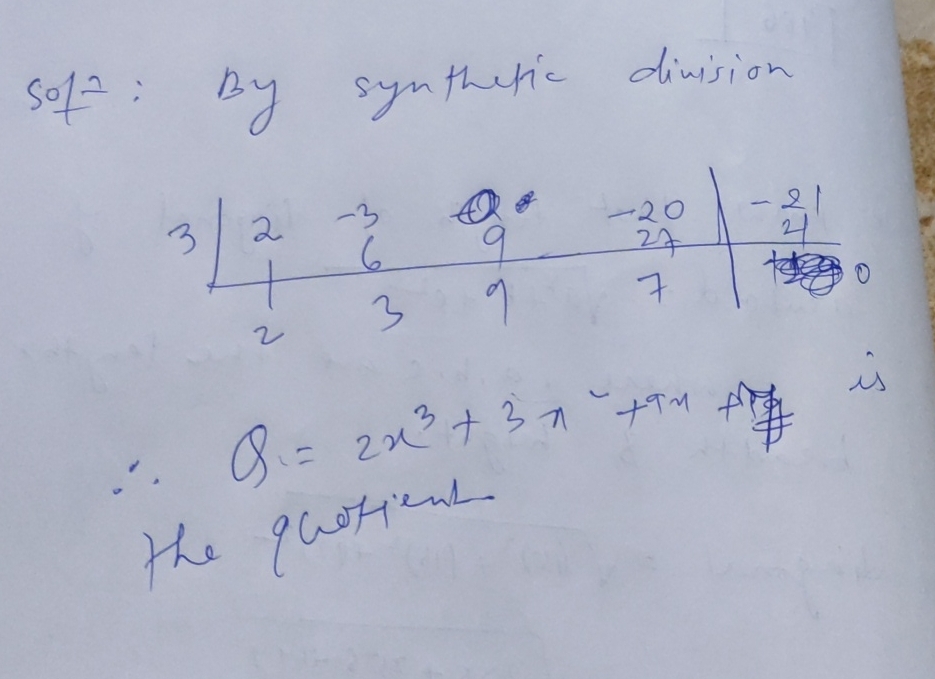 Sol⁠n: By synthetic division
3 | 2 -3 0 -20 | -21
6 9 27 21
2 3 9 7 0
∴ Q = 2x³ + 3x² + 9x + 7 is
the quotient